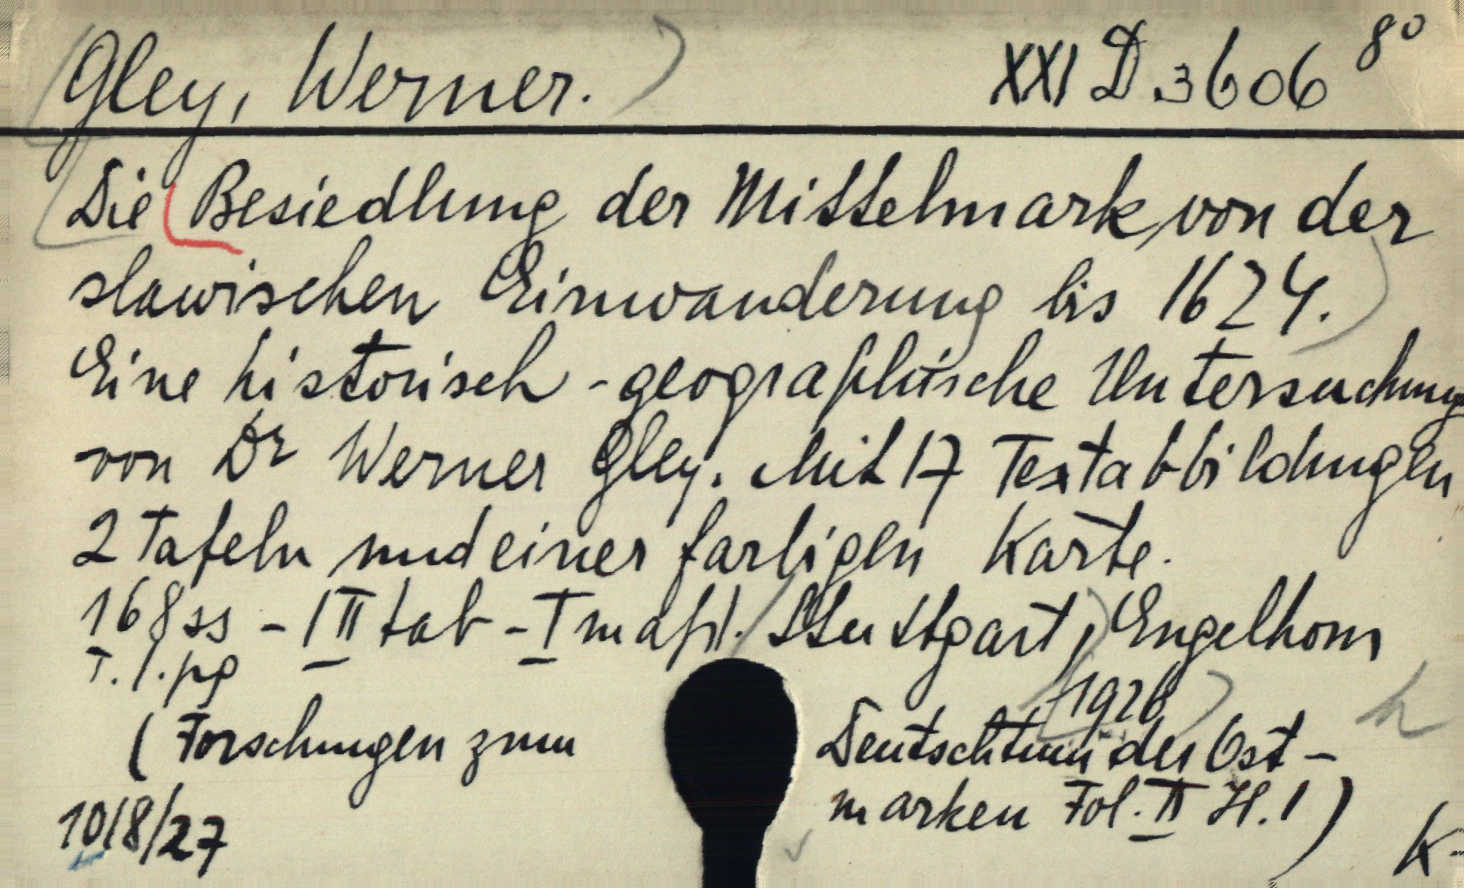 Gley, Werner. XXI D. 3606 8°
Die Besiedlung der Mittelmark, von der
slawischen Einwanderung bis 1624.
Eine historisch-geographische Untersuchung
von Dr Werner Gley. Mit 17 Textabbildungen
2 Tafeln und einer farbigen Karte.
168 ss - III tab - I map. Stuttgart, Engelhorn
T. 1. pg
1926
(Forschungen zum Deutschtum der Ost-
marken Fol. II H. 1)
10/8/27 K-